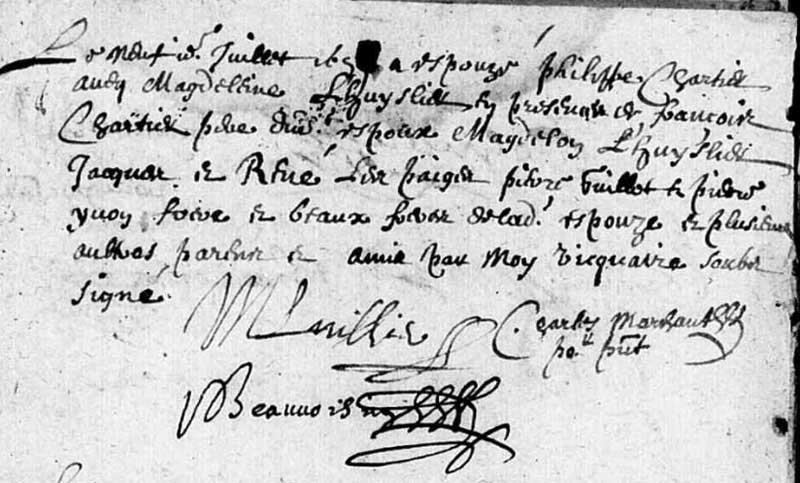 Le neuf ie. Juillet 16 a espouzé philippe Chartier
avecq Magdeleine L'huyslier en presence de francois
Chartier pere dud. espoux Magdelon L'huyslier
Jacques et René Les paiges pierre Guillot et pierre
yvon frere et beaux freres de lad. espouze et plusieurs
aultres parens et amis par Moy vicquaire soubz
signé
M Luillier Charles Marsault
pre. pnt
Beauvois